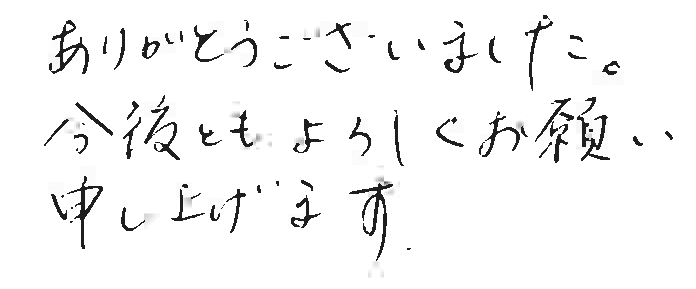 ありがとうございました。
今後ともよろしくお願い
申し上げます.